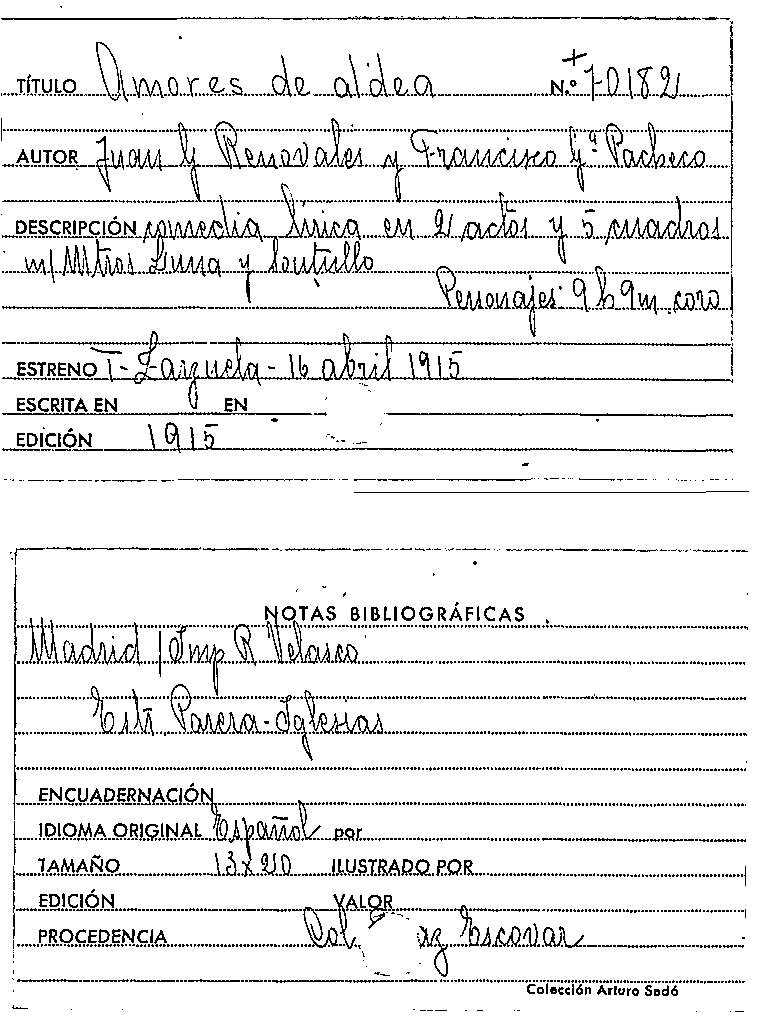 TÍTULO Amores de aldea N.º + 7-0182
AUTOR Juan G Renovales y Francisco Gª Pacheco
DESCRIPCIÓN comedia lírica en 2 actos y 5 cuadros
m/ Mtros Luna y Soutullo
Personajes: 9 h 9 m. coro
ESTRENO T- Zarzuela - 16 abril 1915
ESCRITA EN EN
EDICIÓN 1915
NOTAS BIBLIOGRÁFICAS
Madrid / Imp R Velasco
Parera-Iglesias
ENCUADERNACIÓN
IDIOMA ORIGINAL Español por
TAMAÑO 13 x 20 ILUSTRADO POR
EDICIÓN VALOR
PROCEDENCIA Col. az Escovar
Colección Arturo Sedó